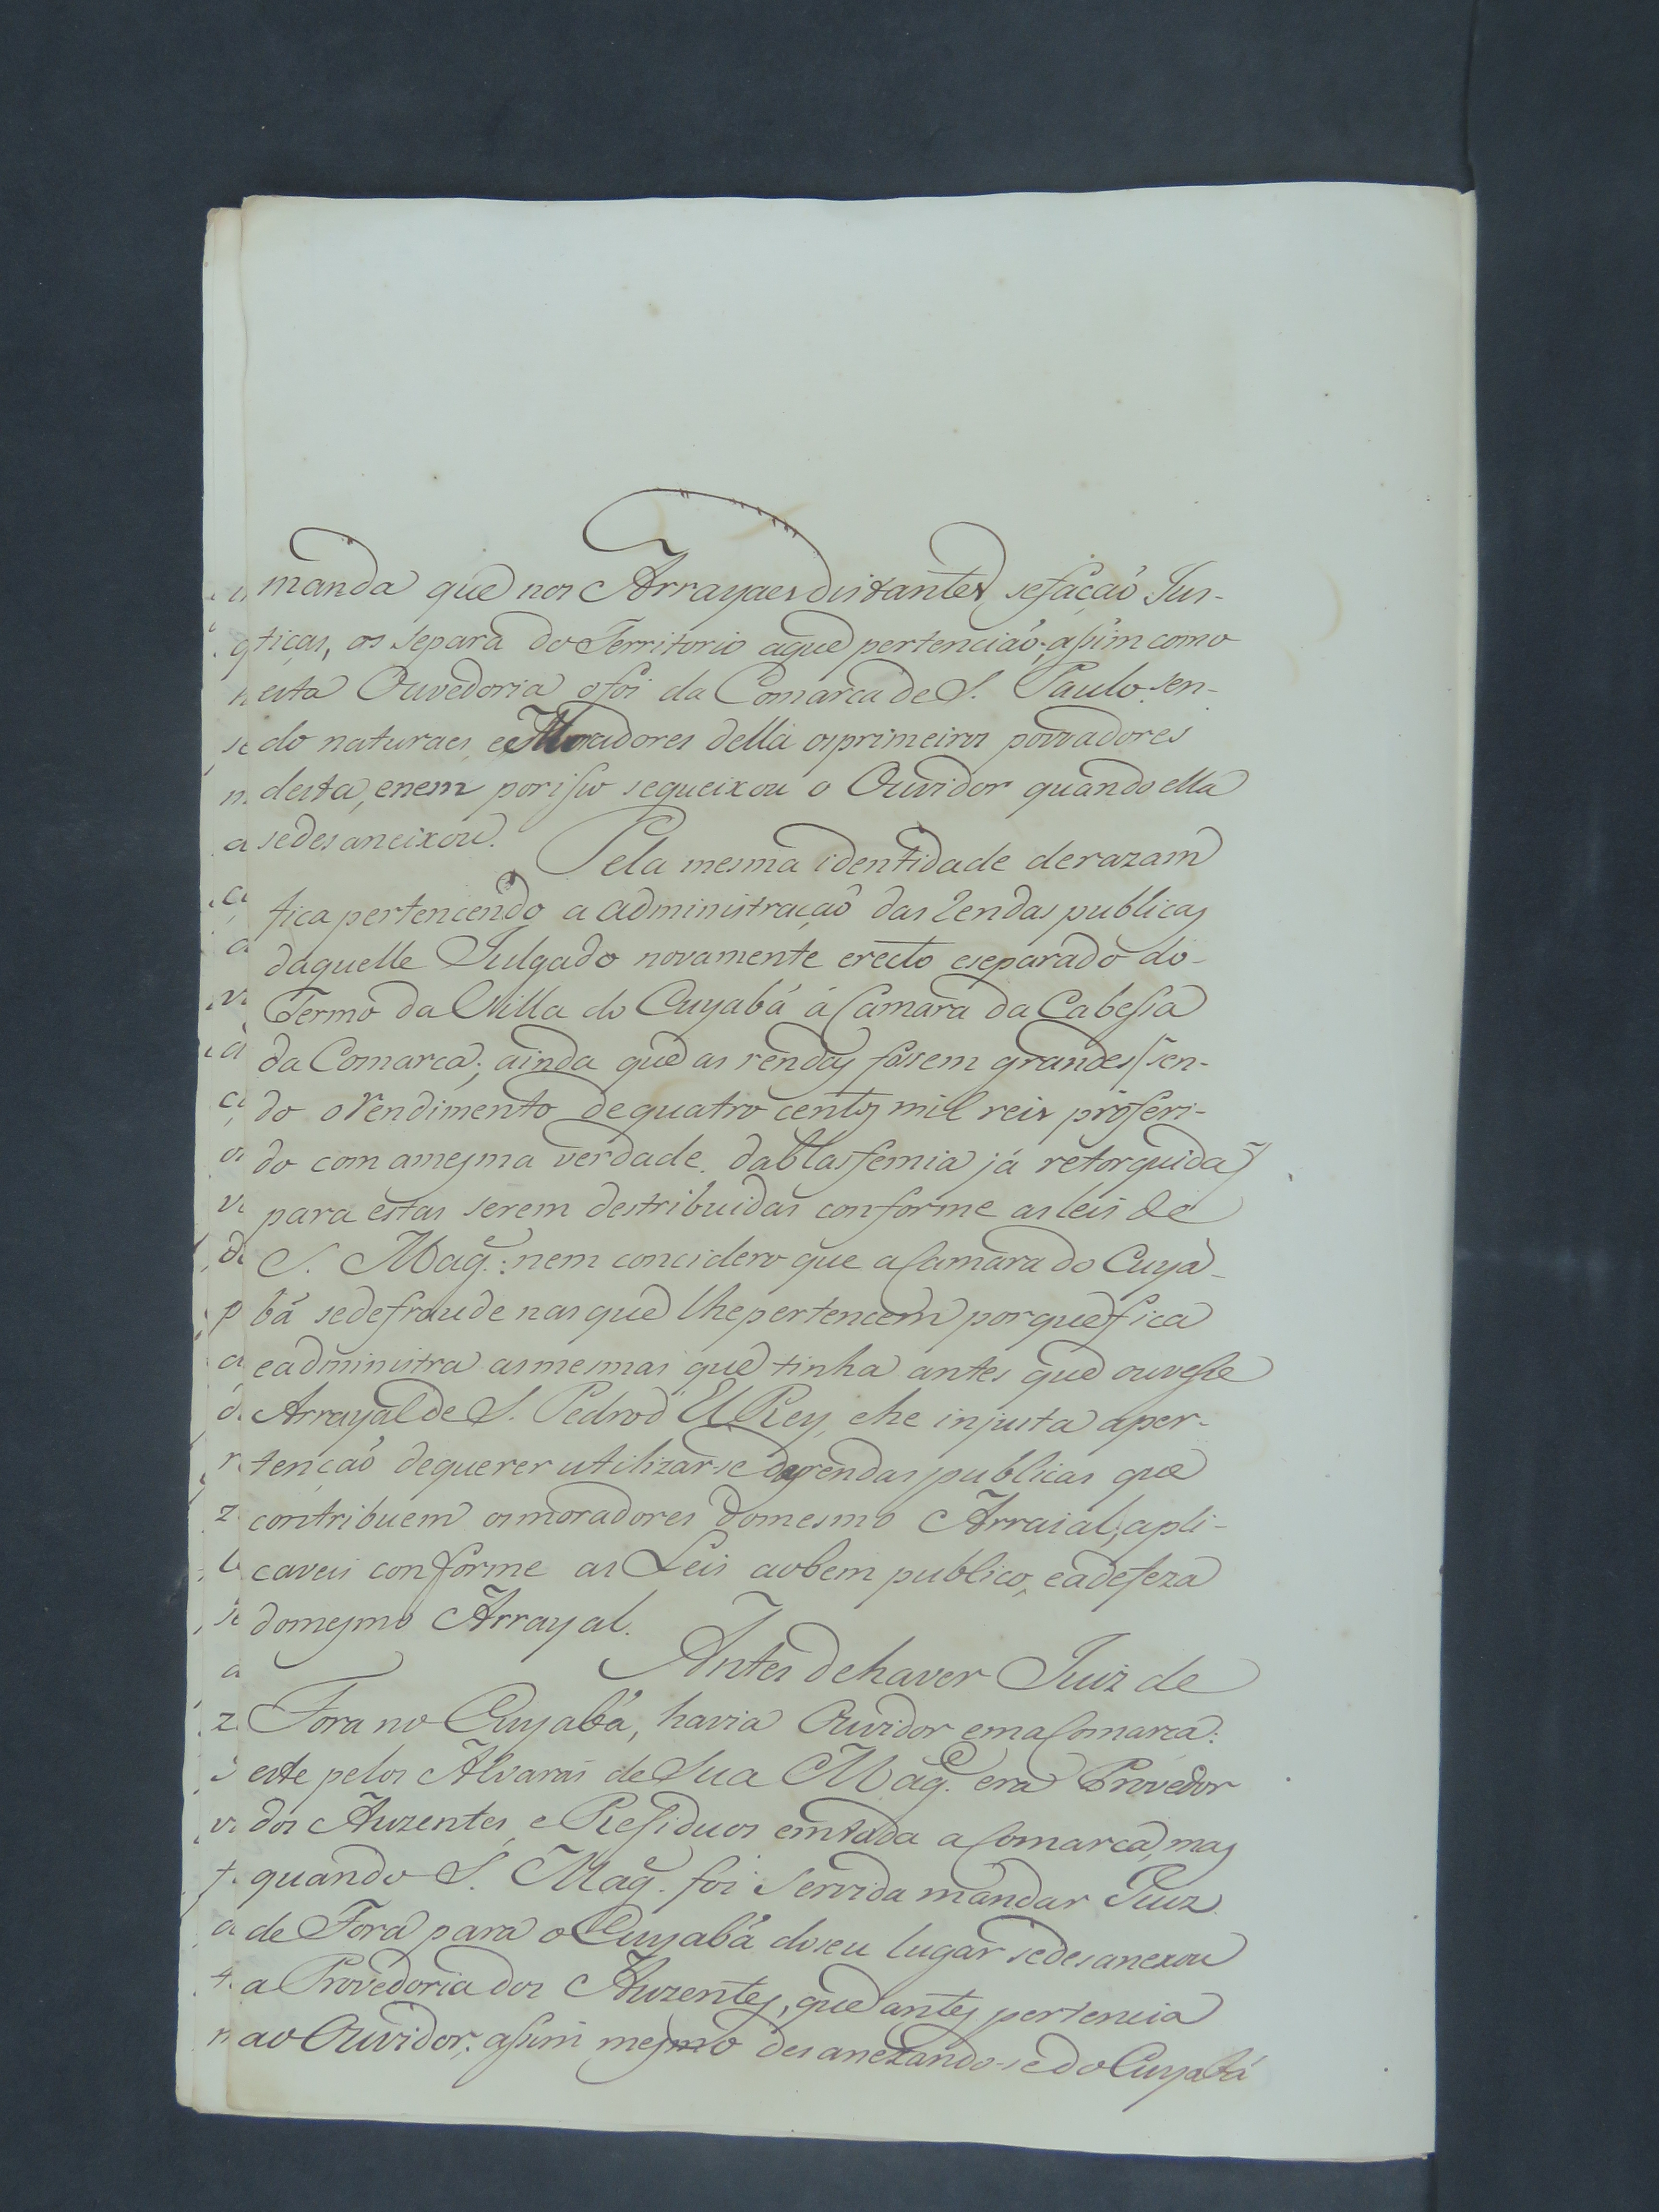 manda que nos Arrayaes distantes, se fação Jus-
tiças, os separa do Territorio aque pertencião; assim como
esta Ouvedoria o foi da Comarca de S. Paulo sen-
do naturaes, e Moradores della os primeiros povoadores
desta, enem porisso sequeixou o Ouvidor quando ella
sedesaneixou.
Pela mesma identidade derazam
fica pertencendo a administração das rendas publicas
daquelle Julgado novamente erecto eseparado do
Termo da Villa do Cuyabá á Camara da Cabessa
da Comarca; ainda que as rendas fossem grandes (sen-
do o rendimento de quatro centos mil reis proferi-
do com amesma verdade dablasfemia já retorquida)
para estas serem destribuidas conforme as leis de
S. Mag.e: nem concidero que a Camara do Cuya-
bá sedefraude nas que lhe pertencem porque fica
eadministra asmesmas que tinha antes que ouvesse
Arrayal de S. Pedro d'El Rey, ehe injusta aper-
tenção dequerer utilizar-se das rendas publicas que
contribuem osmoradores domesmo Arraial; apli-
caveis conforme as Leis aobem publico, eadefeza
domesmo Arrayal.
Antes dehaver Juiz de
Fora no Cuyabá, havia Ouvidor ema Comarca:
este pelos Alvarás de Sua Mag.e era Provedor
dos Auzentes, e Residuos emtoda a Comarca, mas
quando S. Mag.e foi Servida mandar Juiz
de Fora para o Cuyabá doseu lugar sedesanexou
a Provedoria dos Auzentes, que antes pertencia
ao Ouvidor; assim mesmo desanexando-se do Cuyabá